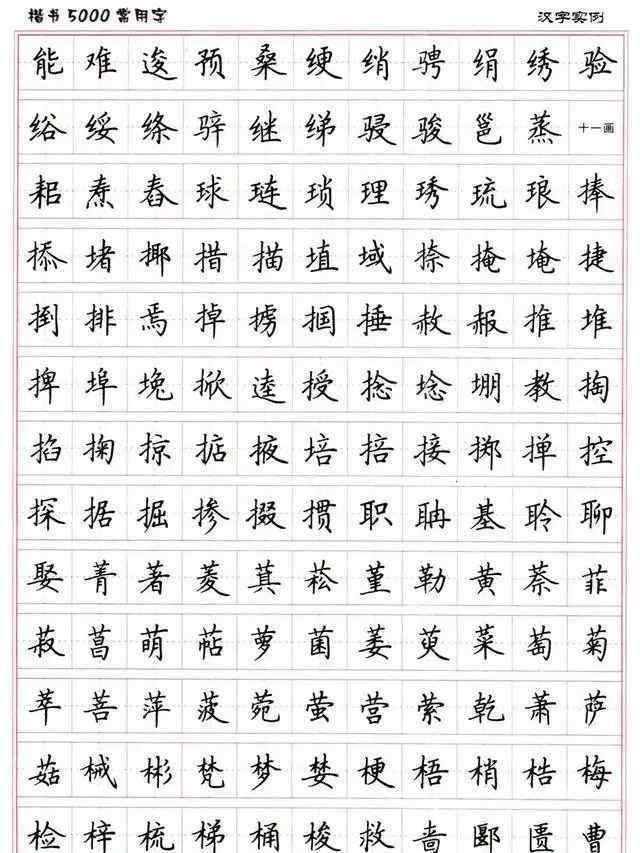 楷书5000常用字 汉字实例
能难逡预桑绠绡骋绢绣验
绤绥绦骍继绨骎骏邕烝十一画
耜焘舂球琏琐理琇琉琅捧
掭堵揶措描埴域捺掩埯捷
捯排焉掉掳掴捶赦赧推堆
捭埠堍掀逵授捻埝堋教掏
掐掬掠掂掖培掊接掷掸控
探据掘掺掇掼职聃基聆聊
娶菁著菱萁菘堇勒黄萘菲
菽菖萌萜萝菌萎萸菜萄菊
萃菩萍菠菀萤营萦乾萧萨
菇械彬梵梦婪梗梧梢梏梅
检梓梳梯桶梭救啬郾匮曹